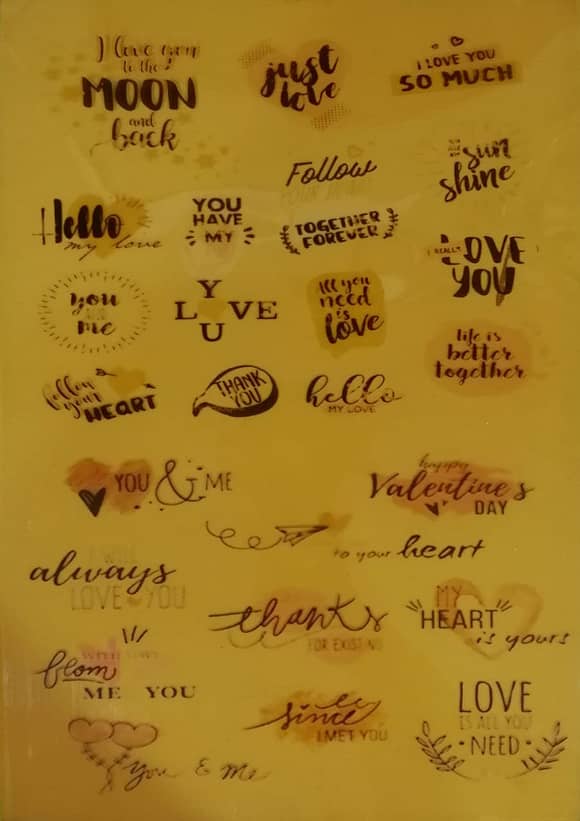 I love you
to the
MOON
and
back
just
love
I LOVE YOU
SO MUCH
Follow
sun
shine
Hello
my love
YOU
HAVE
MY
TOGETHER
FOREVER
I REALLY
LOVE
YOU
you
me
Y
L VE
U
All you
need
is
love
life is
better
together
follow
your
HEART
THANK
YOU
hello
MY LOVE
YOU & ME
happy
Valentine's
DAY
to your heart
always
LOVE YOU
thanks
FOR EXISTING
MY
HEART
is yours
from
ME YOU
since
I MET YOU
LOVE
IS ALL YOU
NEED
You & Me